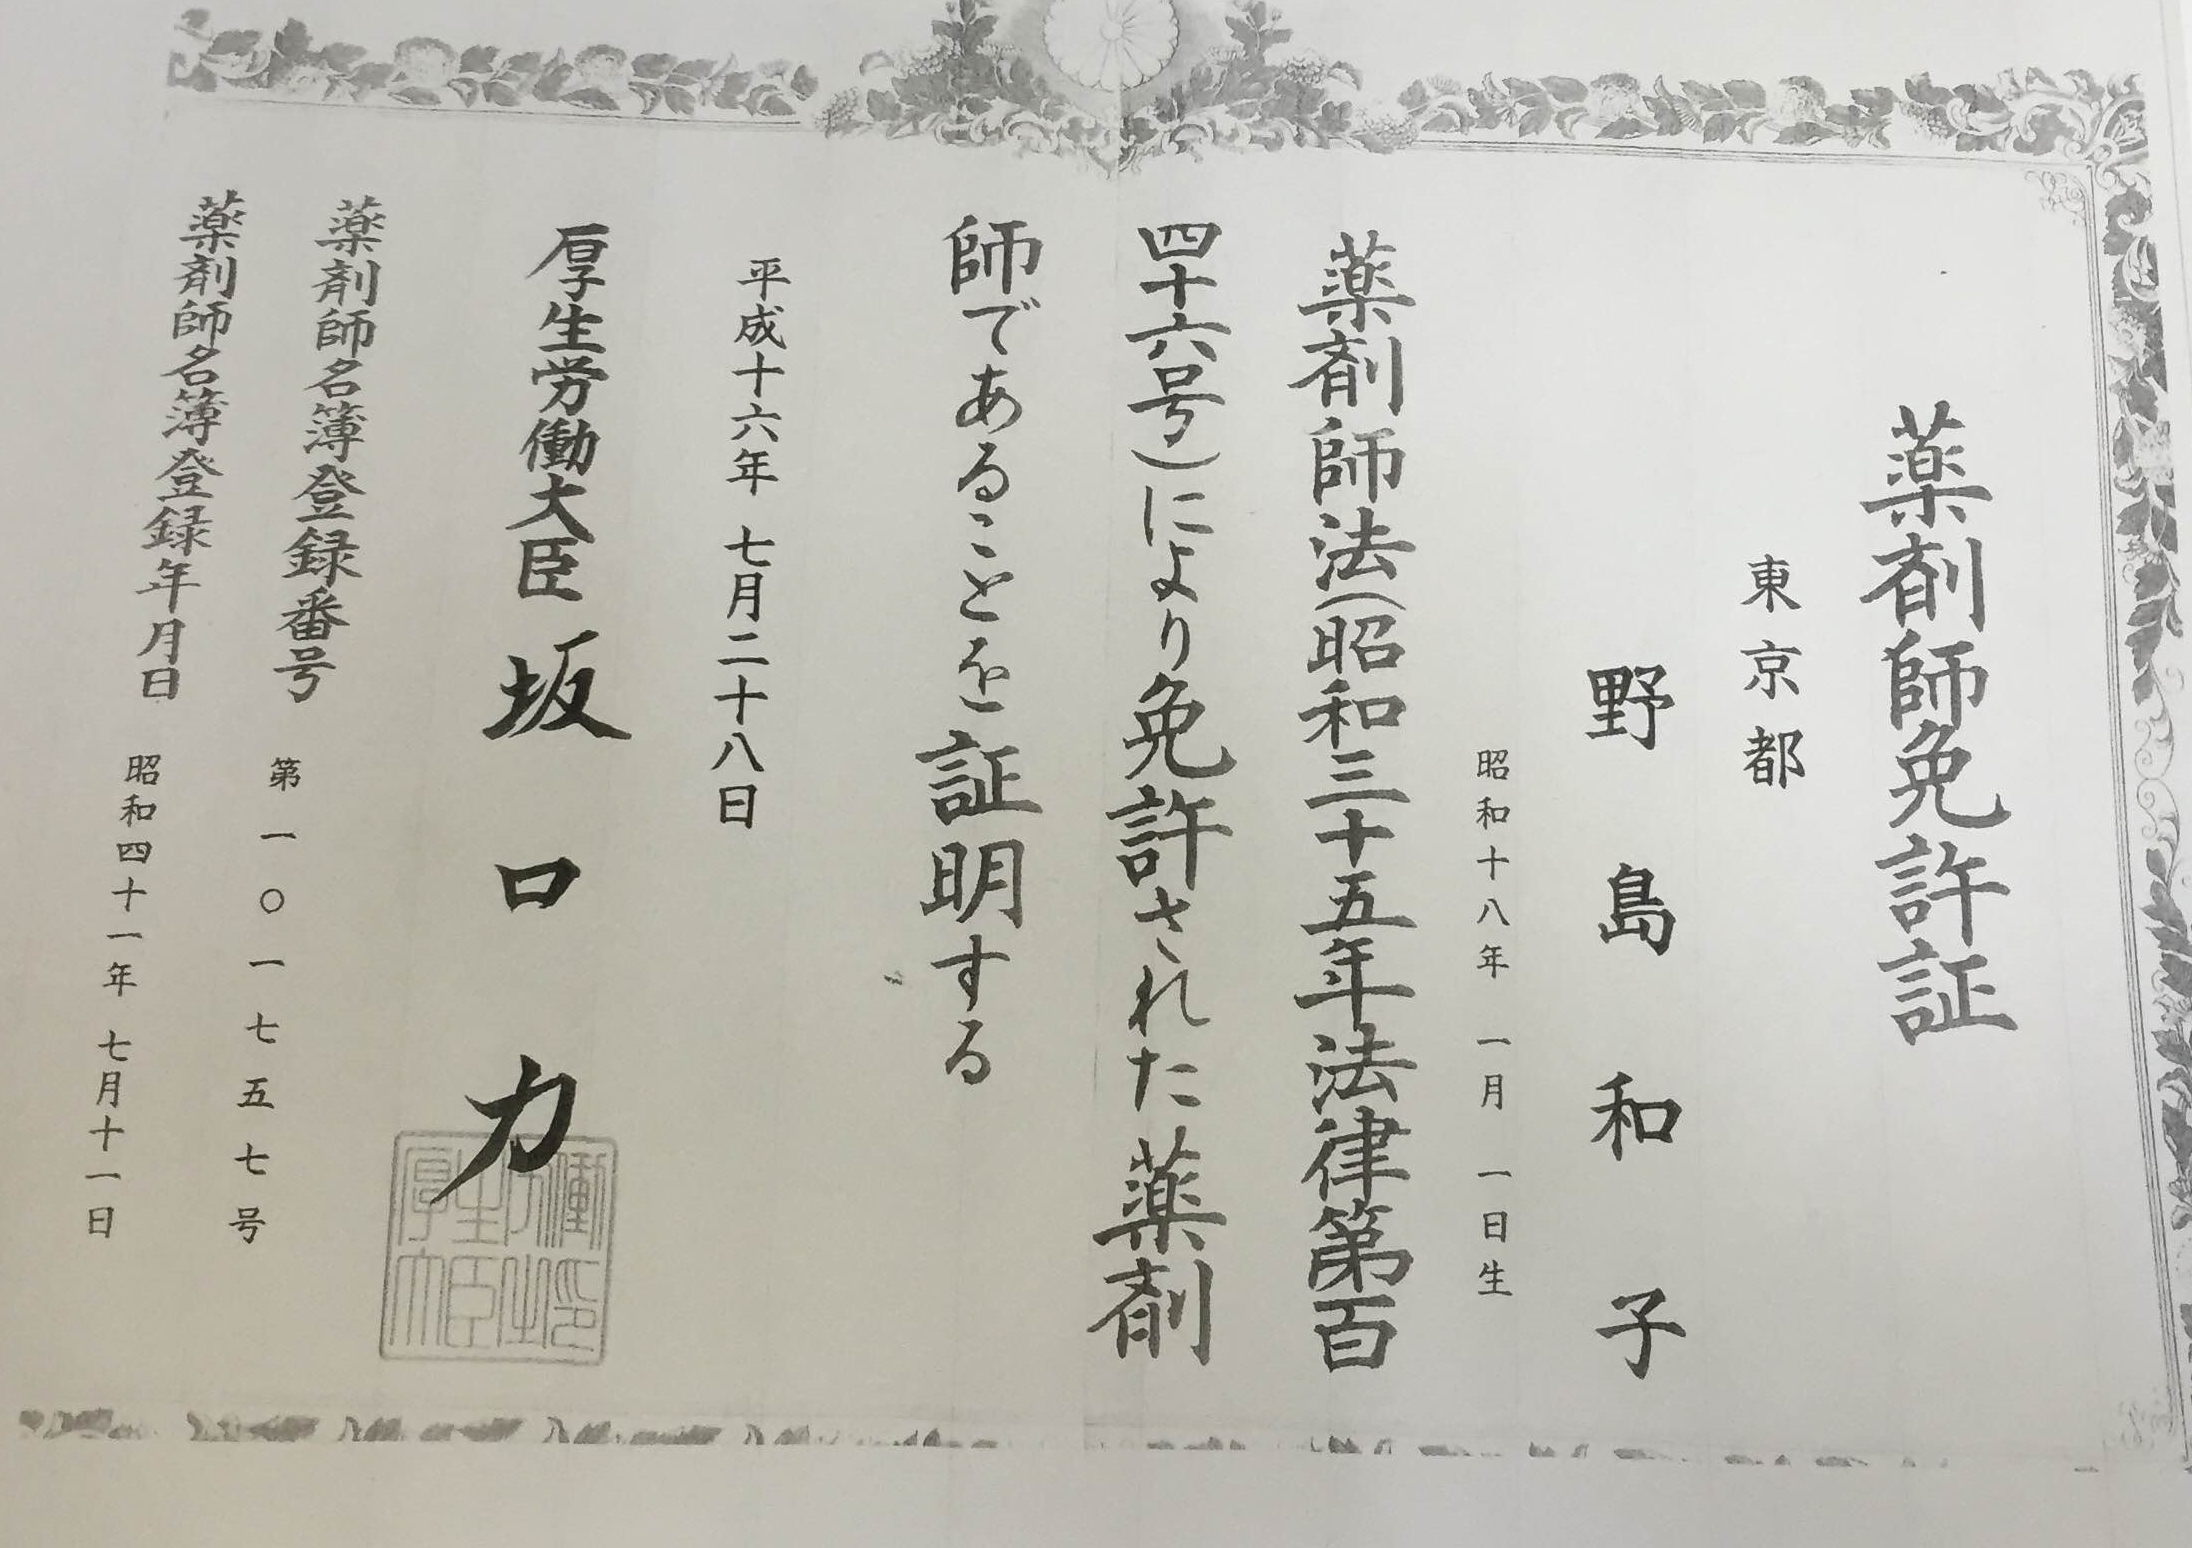 薬剤師免許証
東京都
野島和子
昭和十八年一月一日生
薬剤師法(昭和三十五年法律第百
四十六号)により免許された薬剤
師であることを証明する
平成十六年七月二十八日
厚生労働大臣坂口力
厚生労働大臣之印
薬剤師名簿登録番号第一〇一七五七号
薬剤師名簿登録年月日昭和四十一年七月十一日